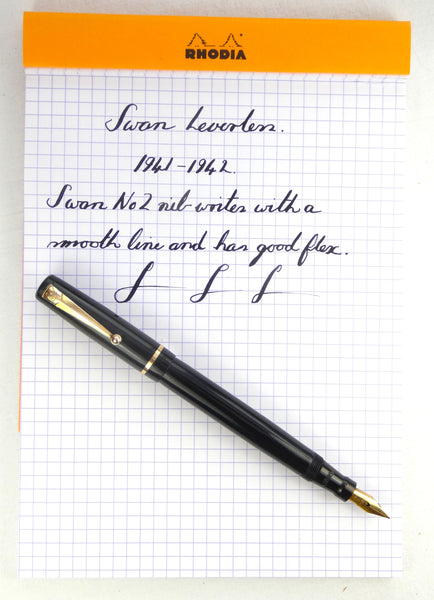 RHODIA
Swan Leverless.
1941-1942.
Swan No2 nib writes with a
smooth line and has good flex.